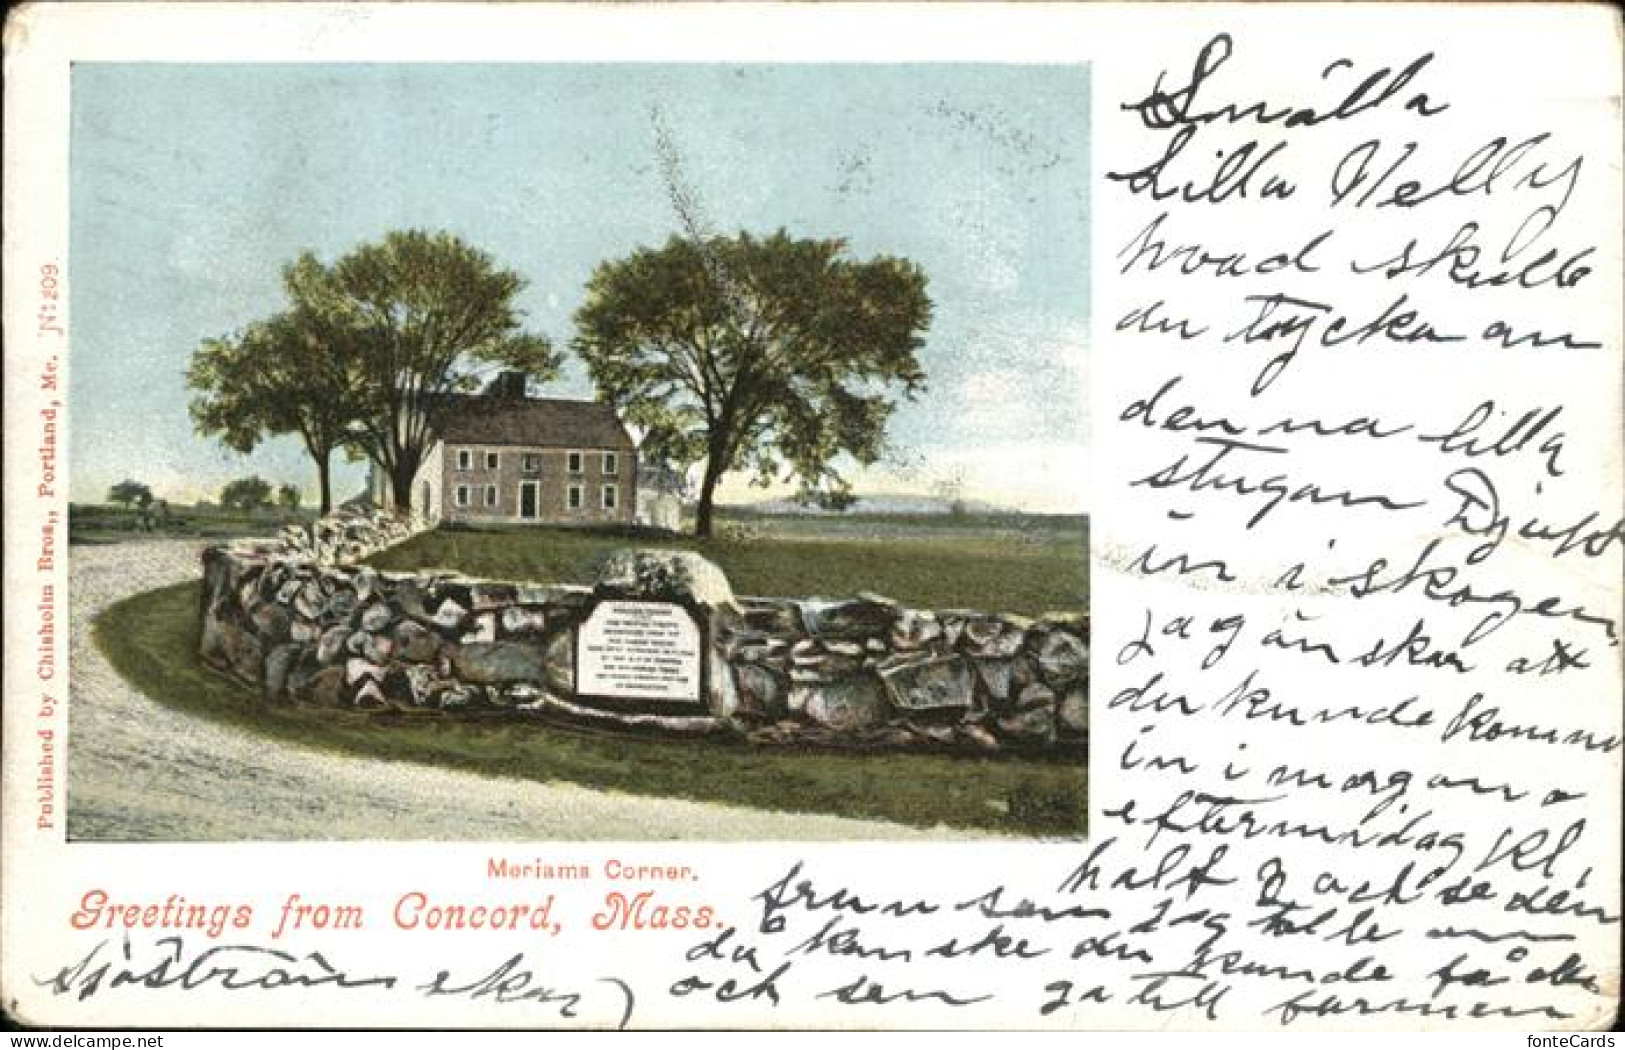 Snälla
Lilla Nelly
hvad skulle
du tycka an
denna lilla
stugan Djupt
in i skogen,
Jag önskar att
du kunde komma
in i morgon
eftermidag Kl,
half 3 och se den
frun som jag talte om
då kanske du kunde få
och sen gå till farmen
Sjöström
Published by Chisholm Bros., Portland, Me. No 209.
Meriams Corner.
Greetings from Concord, Mass.
www.delcampe.net
fonteCards